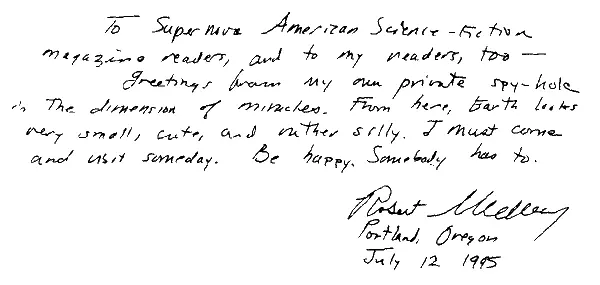 To Supernova American Science-Fiction
magazine readers, and to my readers, too —
Greetings from my own private spy-hole
in the dimension of miracles. From here, Earth looks
very small, cute, and rather silly. I must come
and visit someday. Be happy. Somebody has to.
Robert
Portland, Oregon
July 12 1995